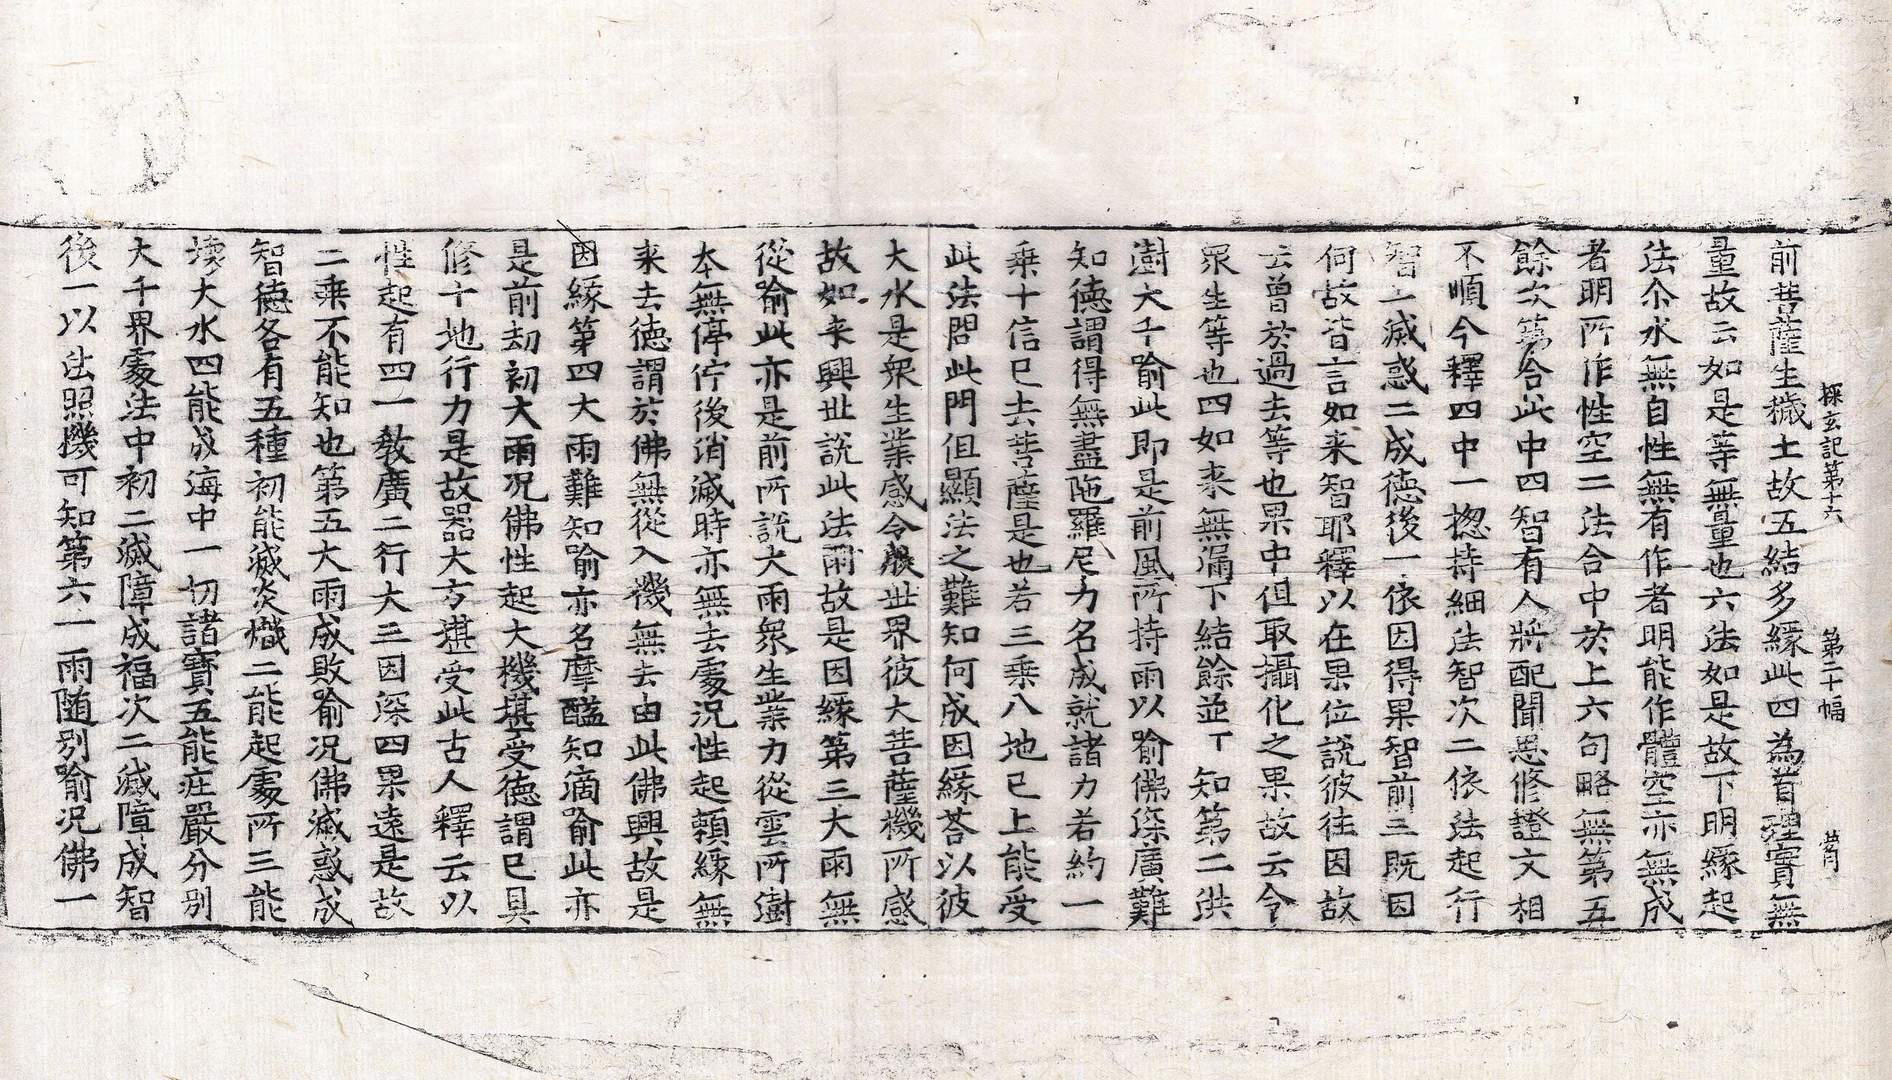 探玄記第十六 第二十幅
前菩薩生穢土故五結多緣此四為首理實無
量故云如是等無量也六法如是故下明緣起
法尒永無自性無有作者明能作體空亦無成
者明所作性空二法合中於上六句略無第五
餘次第合此中四智有人將配聞思修證文相
不順今釋四中一揔持細法智次二依法起行
智一滅惑二成德後一依因得果智前三既因
何故皆言如来智耶釋以在果位說彼往因故
云曾於過去等也果中但取攝化之果故云令
眾生等也四如来無漏下結餘並丁知第二洪
澍大千喻此即是前風所持雨以喻佛深廣難
知德謂得無盡陁羅尼力名成就諸力若約一
乗十信已去菩薩是也若三乗八地已上能受
此法問此門但顯法之難知何成因緣荅以彼
大水是眾生業感令嚴世界彼大菩薩機所感
故如来興世說此法雨故是因緣第三大雨無
從喻此亦是前所說大雨眾生業力從雲所澍
本無停佇後消滅時亦無去處況性起賴緣無
来去德謂於佛無從入機無去由此佛興故是
因緣第四大雨難知喻亦名摩醯知滴喻此亦
是前刼初大雨况佛性起大機堪受德謂已具
修十地行力是故器大方堪受此古人釋云以
性起有四一教廣二行大三因深四果遠是故
二乗不能知也第五大雨成敗喻况佛滅惑成
智德各有五種初能滅炎熾二能起處所三能
壞大水四能成海中一切諸寶五能莊嚴分別
大千界處法中初二滅障成福次二滅障成智
後一以法照機可知第六一雨随别喻况佛一